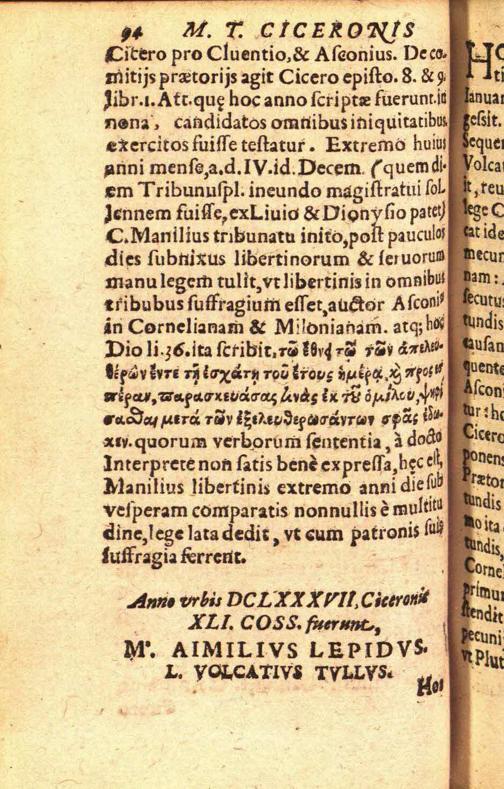 94 M. T. CICERONIS
Cicero pro Cluentio, & Asconius. De co-
mitijs prætorijs agit Cicero episto. 8. & 9.
libr. 1. Att. quę hoc anno scriptæ fuerunt. in
nona, candidatos omnibus iniquitatibus
exercitos fuisse testatur. Extremo huius
anni mense, a.d. IV. id. Decem. (quem di-
em Tribunuspl. ineundo magistratui sol-
lennem fuisse, ex Liuio & Dionysio patet)
C. Manilius tribunatu inito, post pauculos
dies subnixus libertinorum & seruorum
manu legem tulit, vt libertinis in omnibus
tribubus suffragium esset, auctor Asconi9
in Cornelianam & Milonianam. atq; hoc
Dio li. 36. ita scribit, τῶ ἔθνει τῶ τῶν ἀπελευ-
θέρων ἔντε τῇ ἐσχάτῃ τοῦ ἔτους ἡμέρᾳ, κὶ πρὸς ἑσ
πέραν, παρασκευάσας τινὰς ἐκ τοῦ ὁμίλου, ψηφί
σασθαι μετὰ τῶν ἐξελευθερωσάντων σφᾶς ἔδω-
κεν. quorum verborum sententia, à docto
Interprete non satis benè expressa, hęc est,
Manilius libertinis extremo anni die sub
vesperam comparatis nonnullis è multitu
dine, lege lata dedit, vt cum patronis suis
suffragia ferrent.
Anno vrbis DCLXXXVII, Ciceronis
XLI. COSS. fuerunt,
M'. AIMILIVS LEPIDVS.
L. VOLCATIVS TVLLVS.
Hoi
HO
ti
Ianuar
gessit.
Sequen
Volcat
it, reu
lege C
cat ide
mecun
nam:
secutus
tundis
causan
quente
Asconi
tur: ho
Cicero
ponens
Prætor
tundis
mo ita
tundis,
Corne
primun
stendit
pecuni
vt Plut